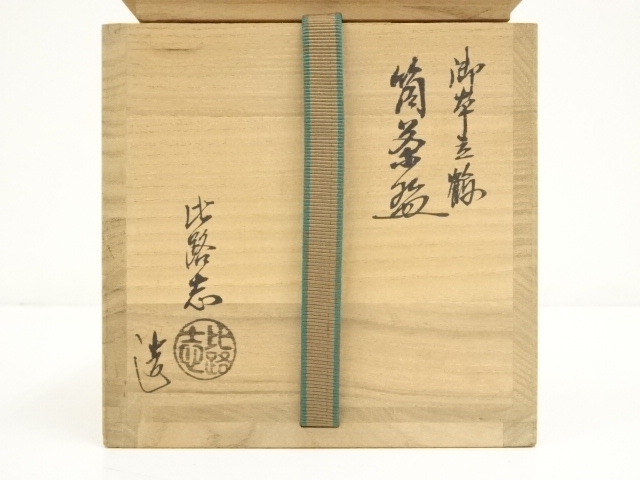 御本立鶴
筒茶盌
比路志
造
比路志